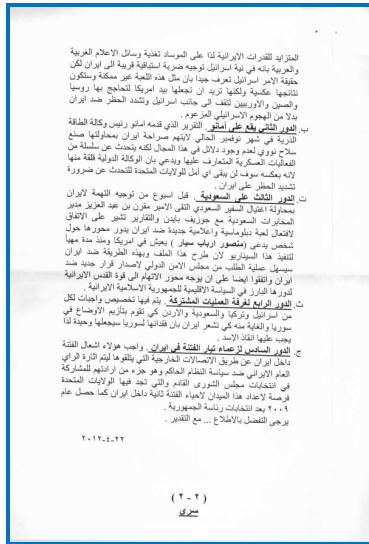 المتزايد للقدرات الايرانية لذا على الموساد تغذية وسائل الاعلام الغربية
والعربية بانه في نية اسرائيل توجيه ضربة استباقية قريبة الى ايران لكن
حقيقة الامر اسرائيل تعرف جيدا بان مثل هذه اللعبة غير ممكنة وستكون
نتائجها عكسية ولكنها تريد ان تجعلها بيد امريكا لتحاجج بها روسيا
والصين والاوربيين لتقف الى جانب اسرائيل وتشدد الحظر ضد ايران
بدلا من الهجوم الاسرائيلي المزعوم .
ب. الدور الثاني يقع على أمانو. التقرير الذي قدمه امانو رئيس وكالة الطاقة
الذرية في شهر نوفمبر الحالي لايتهم صراحة ايران بمحاولتها صنع
سلاح نووي لعدم وجود دلائل في هذا المجال لكنه يتحدث عن سلسلة من
الفعاليات العسكرية المتعارف عليها ويدعي بان الوكالة الدولية قلقة منها
لانه بعكسه سوف لن يبقى اي أمل للولايات المتحدة للتحدث عن ضرورة
تشديد الحظر على ايران .
ت. الدور الثالث على السعودية . قبل اسبوع من توجيه التهمة لايران
بمحاولة اغتيال السفير السعودي التقى الامير مقرن بن عبد العزيز مدير
المخابرات السعودية مع جوزيف بايدن والتقارير تشير على الاتفاق
لافتعال لعبة دبلوماسية واعلامية جديدة ضد ايران يدور محورها حول
شخص يدعى (منصور ارباب سيار ) يعيش في امريكا ومنذ مدة مهيأ
لتنفيذ هذا السيناريو لان طرح هذا الملف وبهذه الطريقة ضد ايران
سيسهل عملية الطلب من مجلس الامن الدولي لاصدار قرار جديد ضد
ايران واتفقوا ايضا على ان يوجه محور الاتهام الى قوة القدس الايرانية
لدورها البارز في السياسة الاقليمية للجمهورية الاسلامية الايرانية .
ث. الدور الرابع لغرفة العمليات المشتركة . يتم فيها تخصيص واجبات لكل
من اسرائيل وتركيا والسعودية والاردن كي تقوم بتأزيم الاوضاع في
سوريا والغاية منه كي تشعر ايران بان فقدانها لسوريا سيجعلها وحيدة لذا
يجب عليها انقاذ الاسد .
ج. الدور السادس لزعماء تيار الفتنة في ايران. واجب هؤلاء اشعال الفتنة
داخل ايران عن طريق الاتصالات الخارجية التي يتلقوها ليتم اثارة الراي
العام الايراني ضد سياسة النظام الحاكم وهو جزء من ارادتهم للمشاركة
في انتخابات مجلس الشورى القادم والتي تجد فيها الولايات المتحدة
فرصة لاعداد هذا الميدان لاحياء الفتنة ثانية داخل ايران كما حصل عام
٢٠٠٩ بعد انتخابات رئاسة الجمهورية .
يرجى التفضل بالاطلاع ... مع التقدير .
٢٢-٤-٢٠١٢
(٢-٢)
سري